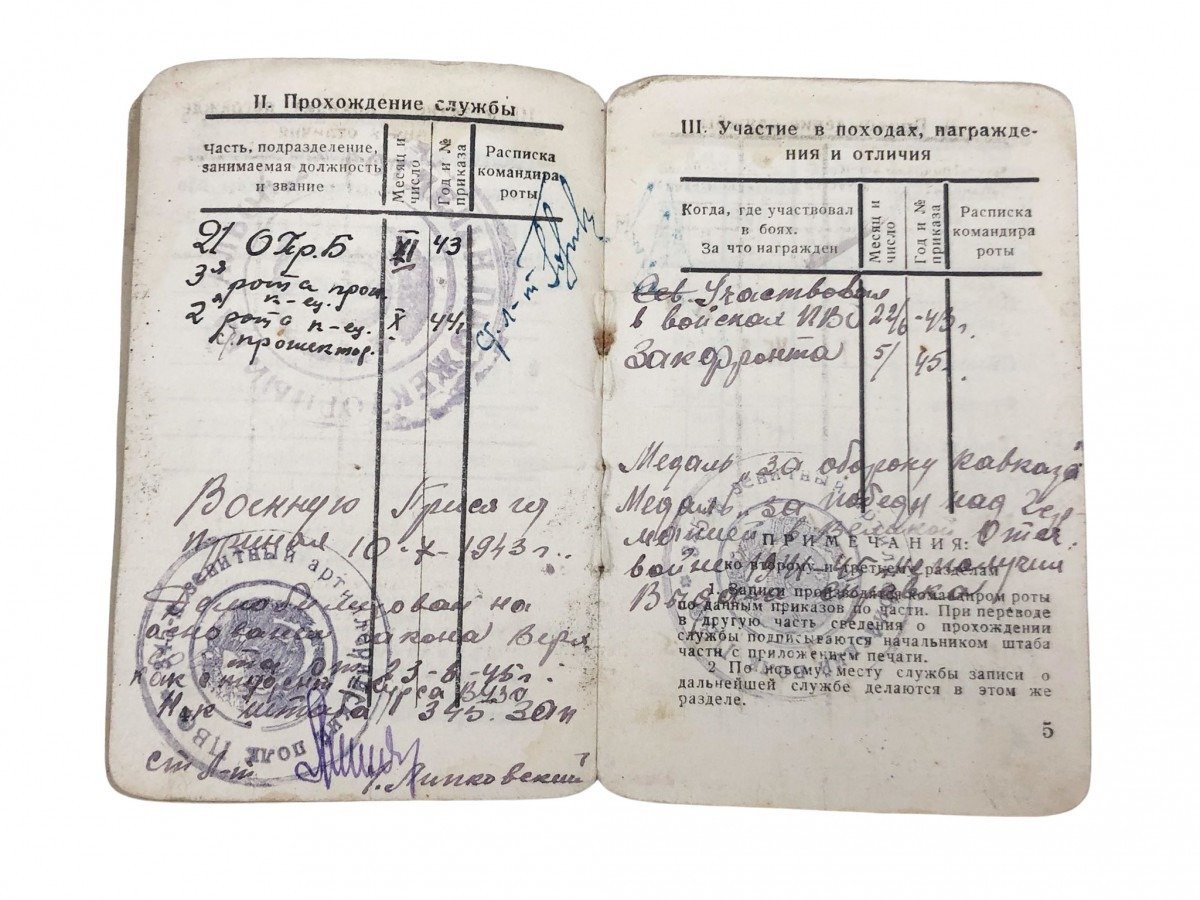 II. Прохождение службы
Часть, подразделение, занимаемая должность и звание
Месяц и число
Год и № приказа
Расписка командира роты
21 ОПр.Б XI 43
3я рота прож.
п-ец.
2я рота п-ец. X 44г
прожектор.
ср. л-т
Военную Присягу
принял 10-X-1943 г.
Демобилизован на
основании закона Верх.
от 23-6-45 г.
как студент курса ВУЗа
Нач штаба 345. ЗАП
ст л-т Липковский
III. Участие в походах, награжде-
ния и отличия
Когда, где участвовал в боях. За что награжден
Месяц и число
Год и № приказа
Расписка командира роты
Участвовал
в войсках ПВО 22/6-43 г.
Закфронта 5/ 45 г.
Медаль „за оборону Кавказа
Медаль „за победу над Гер-
манией в великой Отеч.
войне 1941-45 г.
ПРИМЕЧАНИЯ:
ко второму и третьему разделам
1. Записи производятся командиром роты
по данным приказов по части. При переводе
в другую часть сведения о прохождении
службы подписываются начальником штаба
части с приложением печати.
2 По новому месту службы записи о
дальнейшей службе делаются в этом же
разделе.
5